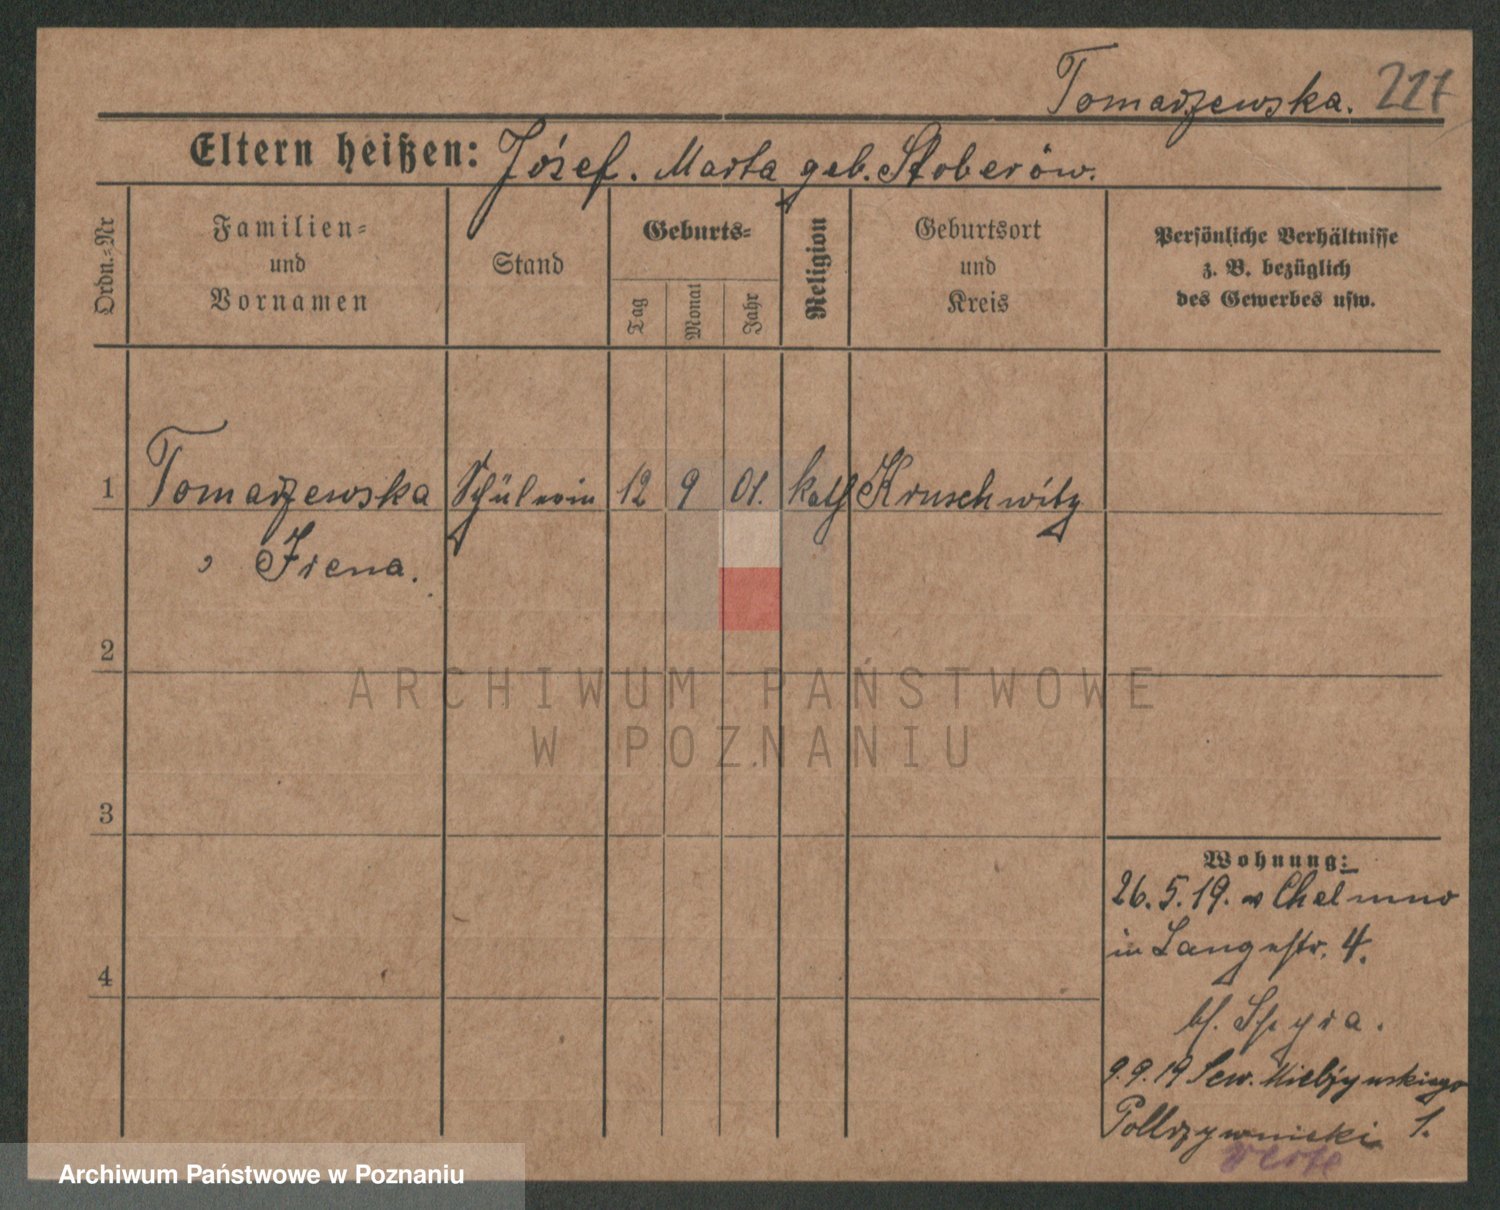 Tomaszewska. 227
Eltern heißen: Józef. Marta geb. Stoberów.
Ordn.-Nr
Familien-
und
Vornamen
Stand
Geburts-
Tag
Monat
Jahr
Religion
Geburtsort
und
Kreis
Persönliche Verhältnisse
z. B. bezüglich
des Gewerbes usw.
1 Tomaszewska Schülerin 12 9 01. kath Kruschwitz
, Irena.
2
3
4
Wohnung:
26.5.19. v Chelmno
in Langestr. 4.
bf. Spyra.
9.9.19 Sew. Mielżyńskiego
1.
verte
ARCHIWUM PAŃSTWOWE
W POZNANIU
Archiwum Państwowe w Poznaniu